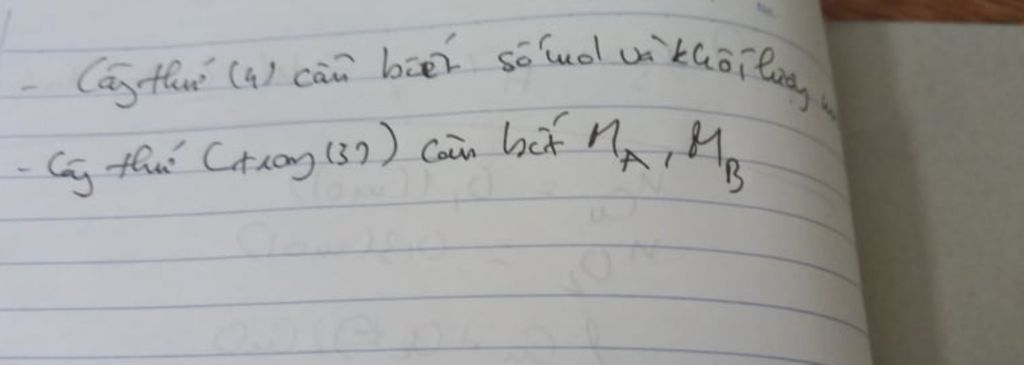 - Công thức (4) cần biết số mol và khối lượng
- Công thức (trong (3)) cần biết M_A, M_B